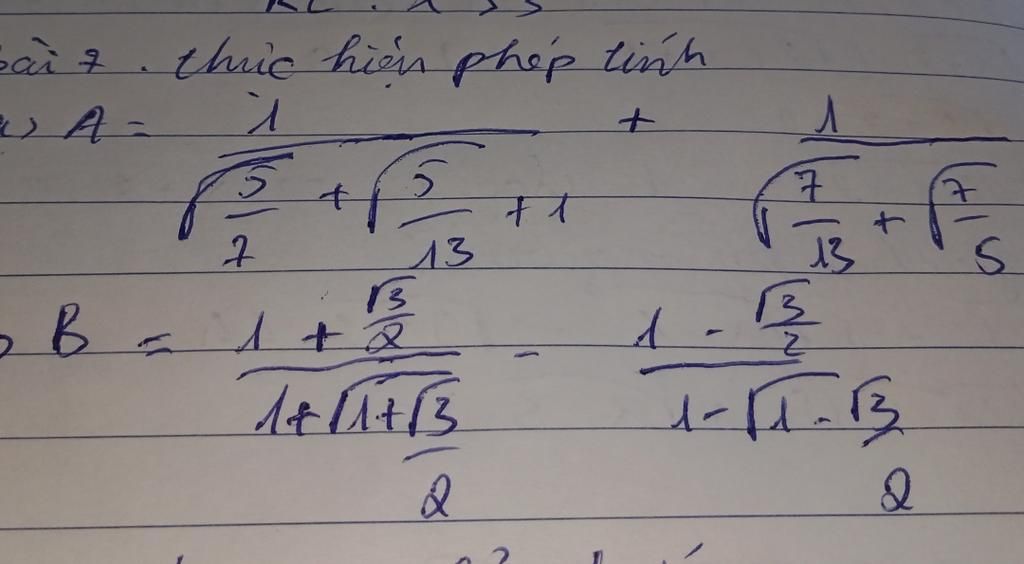 bài 7. thực hiện phép tính
a) A = 1/(√(5/7) + √(5/13) + 1) + 1/(√(7/13) + √(7/5)
B = (1 + √3/2)/(1 + √(1 + √3/2)) - (1 - √3/2)/(1 - √(1 - √3/2))